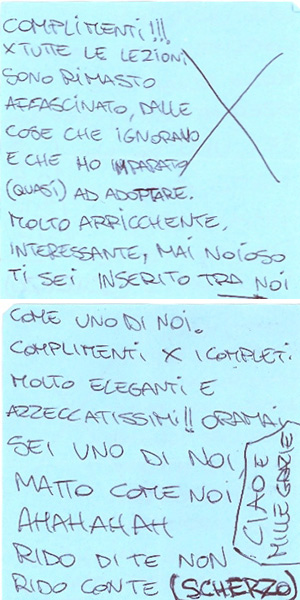 COMPLIMENTI!!!
X TUTTE LE LEZIONI
SONO RIMASTO
AFFASCINATO, DALLE
COSE CHE IGNORAVO
E CHE HO IMPARATO
(QUASI) AD ADOTTARE.
MOLTO ARRICCHENTE,
INTERESSANTE, MAI NOIOSO
TI SEI INSERITO TRA NOI
COME UNO DI NOI.
COMPLIMENTI X I COMPLETI
MOLTO ELEGANTI E
AZZECCATISSIMI!! ORAMAI
SEI UNO DI NOI,
MATTO COME NOI
AHAHAHAH
RIDO DI TE NON
RIDO CONTE (SCHERZO)
CIAO E
MILLE GRAZIE